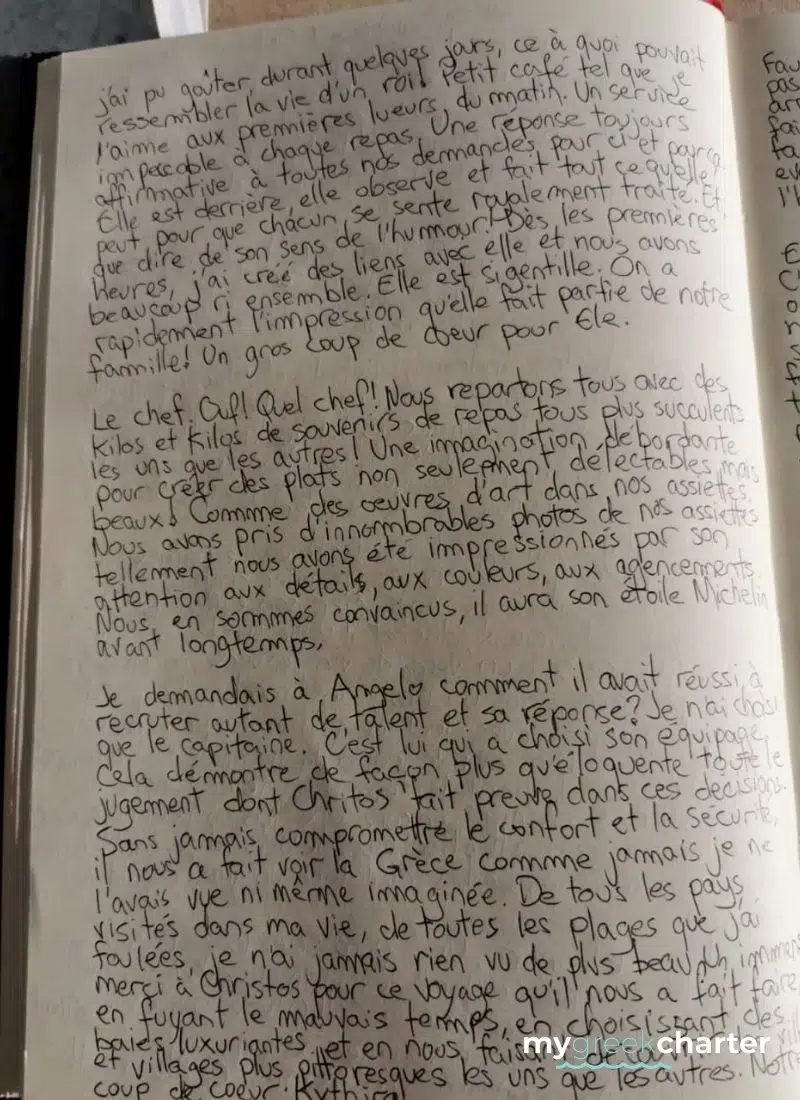 j'ai pu goûter, durant quelques jours, ce à quoi pouvait
ressembler la vie d'un roi! Petit café tel que je
l'aime aux premières lueurs du matin. Un service
impeccable à chaque repas. Une réponse toujours
affirmative à toutes nos demandes pour ci et pour ça.
Elle est derrière, elle observe et fait tout ce qu'elle
peut, pour que chacun se sente royalement traité. Et
que dire de son sens de l'humour! Dès les premières
heures, j'ai créé des liens avec elle et nous avons
beaucoup ri ensemble. Elle est si gentille. On a
rapidement l'impression qu'elle fait partie de notre
famille! Un gros coup de coeur pour Ele.
Le chef. Ouf! Quel chef! Nous repartons tous avec des
kilos et kilos de souvenirs de repas tous plus succulents
les uns que les autres! Une imagination débordante
pour créer des plats non seulement délectables mais
beaux! Comme des oeuvres d'art dans nos assiettes.
Nous avons pris d'innombrables photos de nos assiettes
tellement nous avons été impressionnés par son
attention aux détails, aux couleurs, aux agencements.
Nous, en sommes convaincus, il aura son étoile Michelin
avant longtemps.
Je demandais à Angelo comment il avait réussi à
recruter autant de talent et sa réponse? Je n'ai choisi
que le capitaine. C'est lui qui a choisi son équipage.
Cela démontre de façon plus qu'éloquente toute le
jugement dont Chritos fait preuve dans ces decisions.
Sans jamais compromettre le confort et la sécurité,
il nous a fait voir la Grèce comme jamais je ne
l'avais vue ni même imaginée. De tous les pays
visités dans ma vie, de toutes les plages que j'ai
foulées, je n'ai jamais rien vu de plus beau. Un immense
merci à Christos pour ce voyage qu'il nous a fait faire
en fuyant le mauvais temps, en choisissant des
baies luxuriantes et en nous faisant
et villages plus pittoresques les uns que les autres. Notre
coup de coeur: Kythira
mygreekcharter